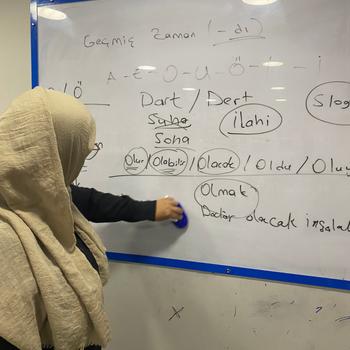 Geçmiş Zaman (-dı)
A - E - O - U - Ö - İ - i
/ Ö
Dart / Dert
Slog
Suha
ilahi
Soha
Olur / Olabilir / Olacak / Oldu / Oluy
Olmak
Doctor olacak inşalal